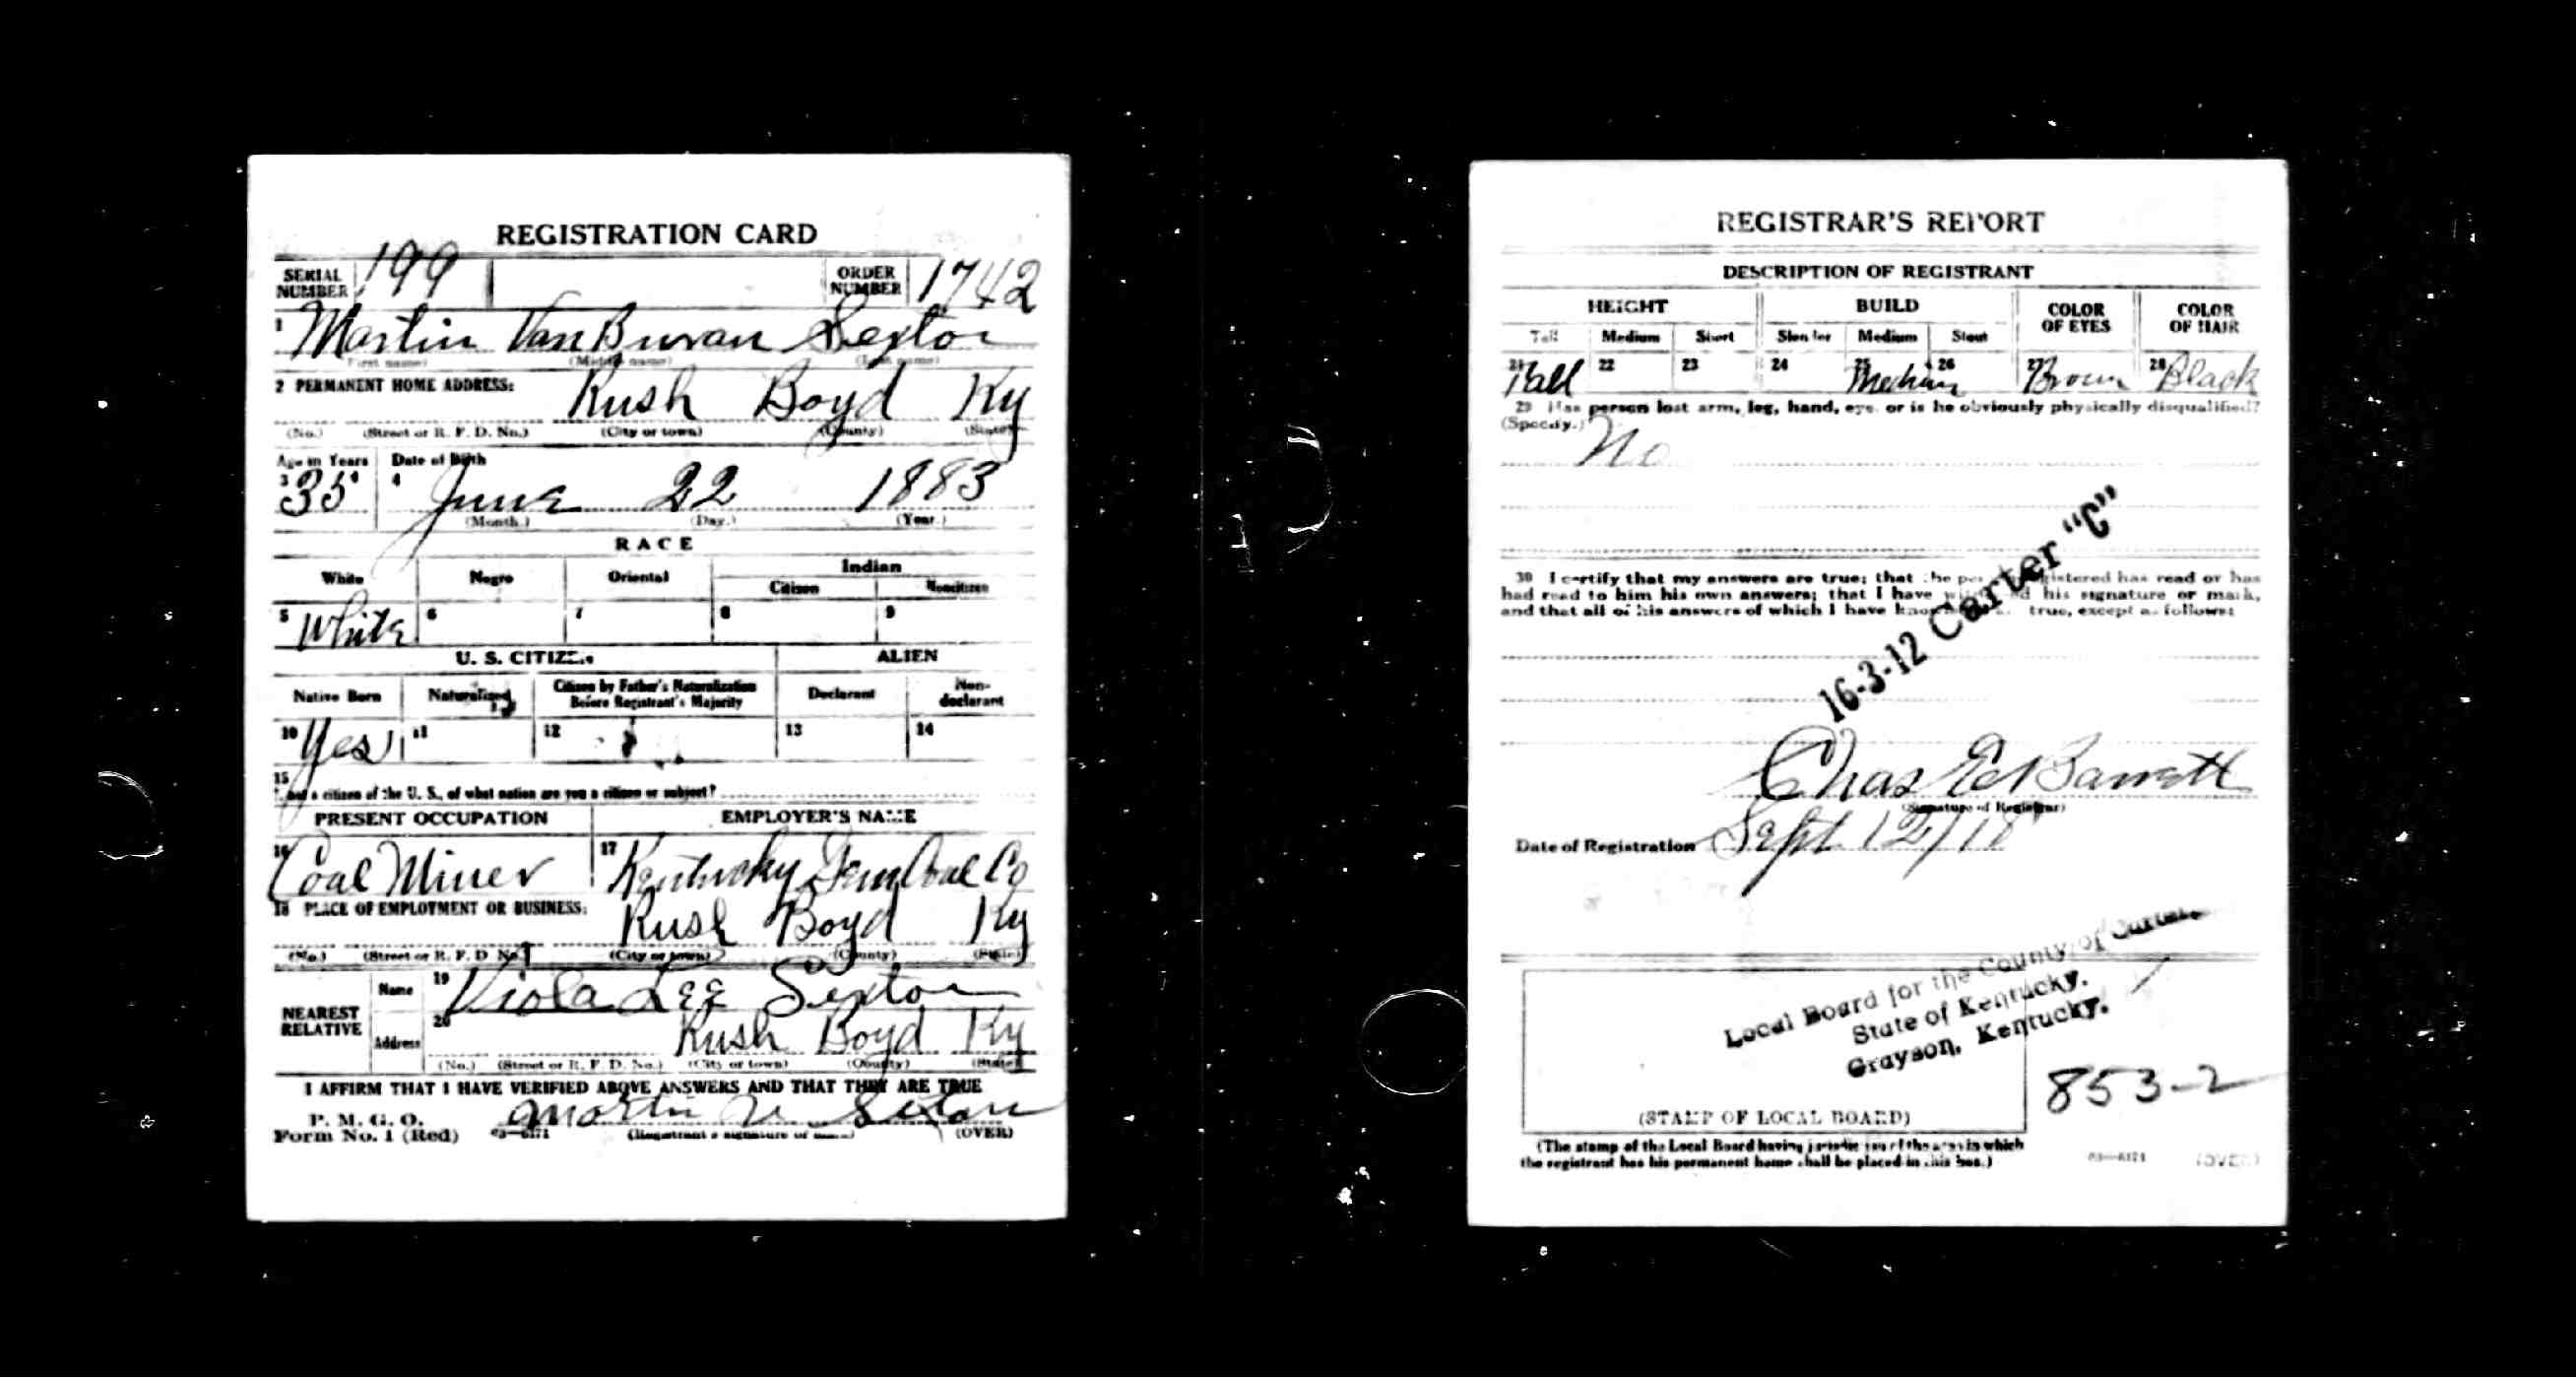 REGISTRATION CARD
SERIAL NUMBER 199 ORDER NUMBER 1742
1 Martin Van Buran Sexton
(First name) (Middle name) (Last name)
2 PERMANENT HOME ADDRESS: Rush Boyd Ky
(No.) (Street or R. F. D. No.) (City or town) (County) (State)
Age in Years Date of Birth
3 35 4 June 22 1883
(Month.) (Day.) (Year.)
RACE
White Negro Oriental Indian
Citizen Noncitizen
5 White 6 7 8 9
U. S. CITIZEN ALIEN
Native Born Naturalized Citizen by Father's Naturalization Before Registrant's Majority Declarant Non-declarant
10 Yes 11 12 13 14
15
not a citizen of the U. S., of what nation are you a citizen or subject?
PRESENT OCCUPATION EMPLOYER'S NAME
16 Coal Miner 17 Kentucky Gem Coal Co
18 PLACE OF EMPLOYMENT OR BUSINESS: Rush Boyd Ky
(No.) (Street or R. F. D. No.) (City or town) (County) (State)
NEAREST RELATIVE Name 19 Viola Lee Sexton
Address 20 Rush Boyd Ky
(No.) (Street or R. F. D. No.) (City or town) (County) (State)
I AFFIRM THAT I HAVE VERIFIED ABOVE ANSWERS AND THAT THEY ARE TRUE
P. M. G. O.
Form No. 1 (Red) 03—6171 Martin V Sexton
(Registrant's signature or mark) (OVER)
REGISTRAR'S REPORT
DESCRIPTION OF REGISTRANT
HEIGHT BUILD COLOR OF EYES COLOR OF HAIR
Tall Medium Short Slender Medium Stout
21 Tall 22 23 24 25 Medium 26 27 Brown 28 Black
29 Has person lost arm, leg, hand, eye, or is he obviously physically disqualified?
(Specify.) No
30 I certify that my answers are true; that the person registered has read or has
had read to him his own answers; that I have witnessed his signature or mark,
and that all of his answers of which I have knowledge are true, except as follows:
16-3-12 Carter "C"
Chas E Barrett
(Signature of Registrar)
Date of Registration Sept 12/18
Local Board for the County of Carter
State of Kentucky.
Grayson, Kentucky.
853-2
(STAMP OF LOCAL BOARD)
(The stamp of the Local Board having jurisdiction of the area in which
the registrant has his permanent home shall be placed in this box.)
03—6171 (OVER)